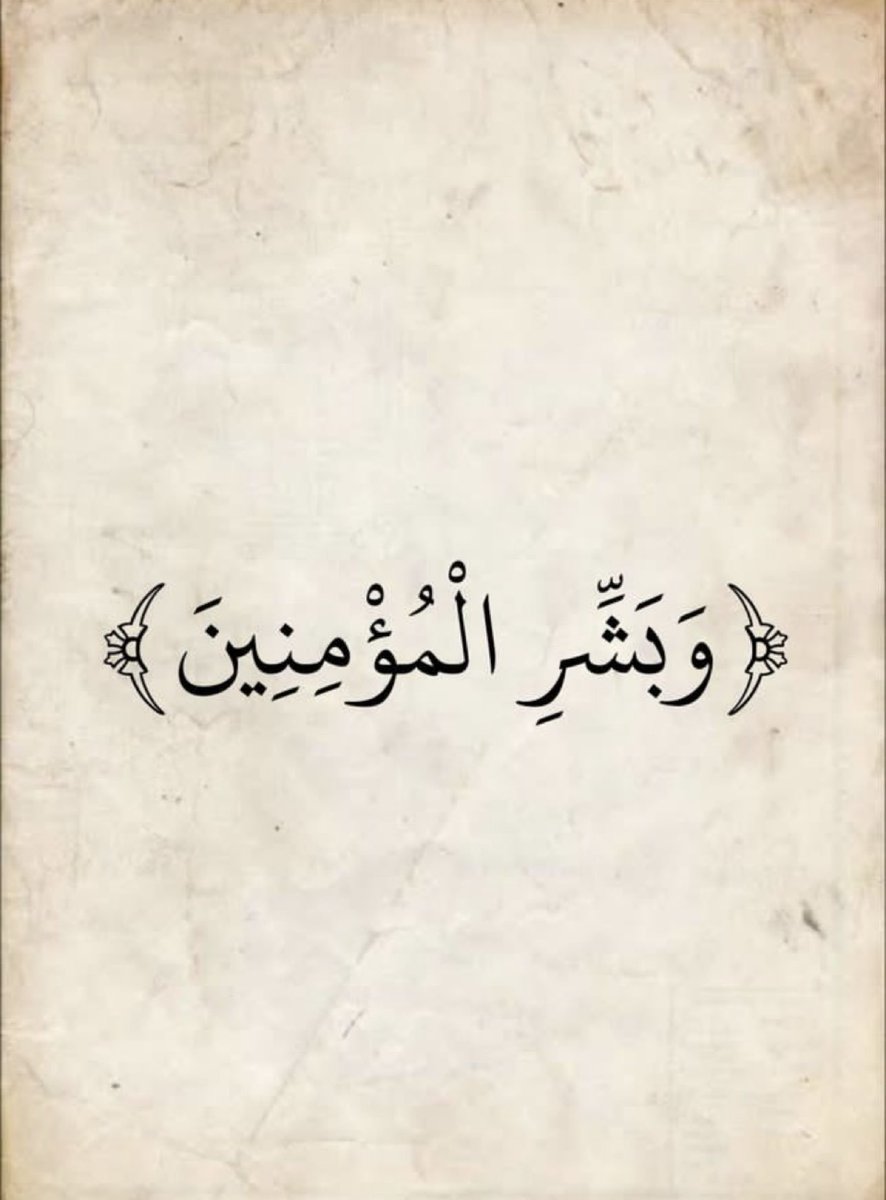 ﴿ وَبَشِّرِ الْمُؤْمِنِينَ ﴾